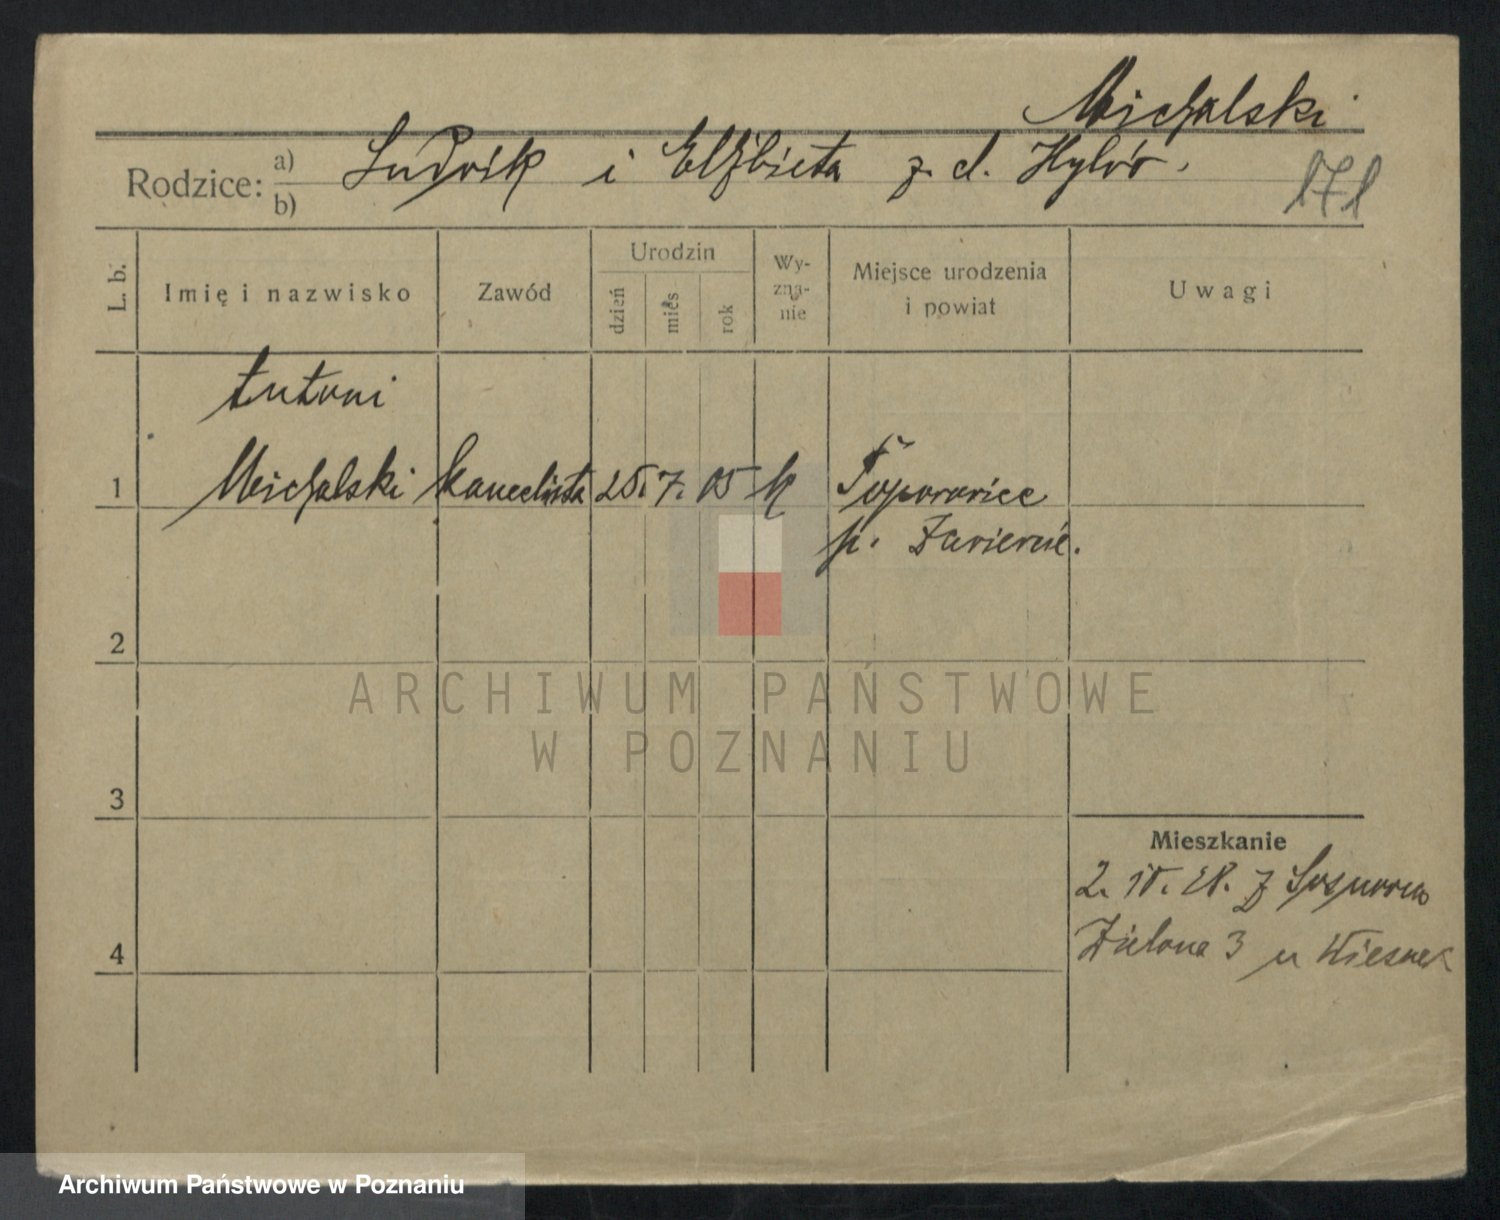 Michalski
Rodzice: a) Ludwik i Elżbieta z. d. Hylor.
b)
171
L. b. Imię i nazwisko Zawód Urodzin dzień mieś rok Wy-zna-nie Miejsce urodzenia i powiat Uwagi
Antoni
1 Michalski kancelista 25. 7. 05 k Toporowice
p. Zawiercie.
2
ARCHIWUM PAŃSTWOWE
W POZNANIU
3
Mieszkanie
2. 10. 28. z Sosnowca
4 Zielona 3 u
Archiwum Państwowe w Poznaniu